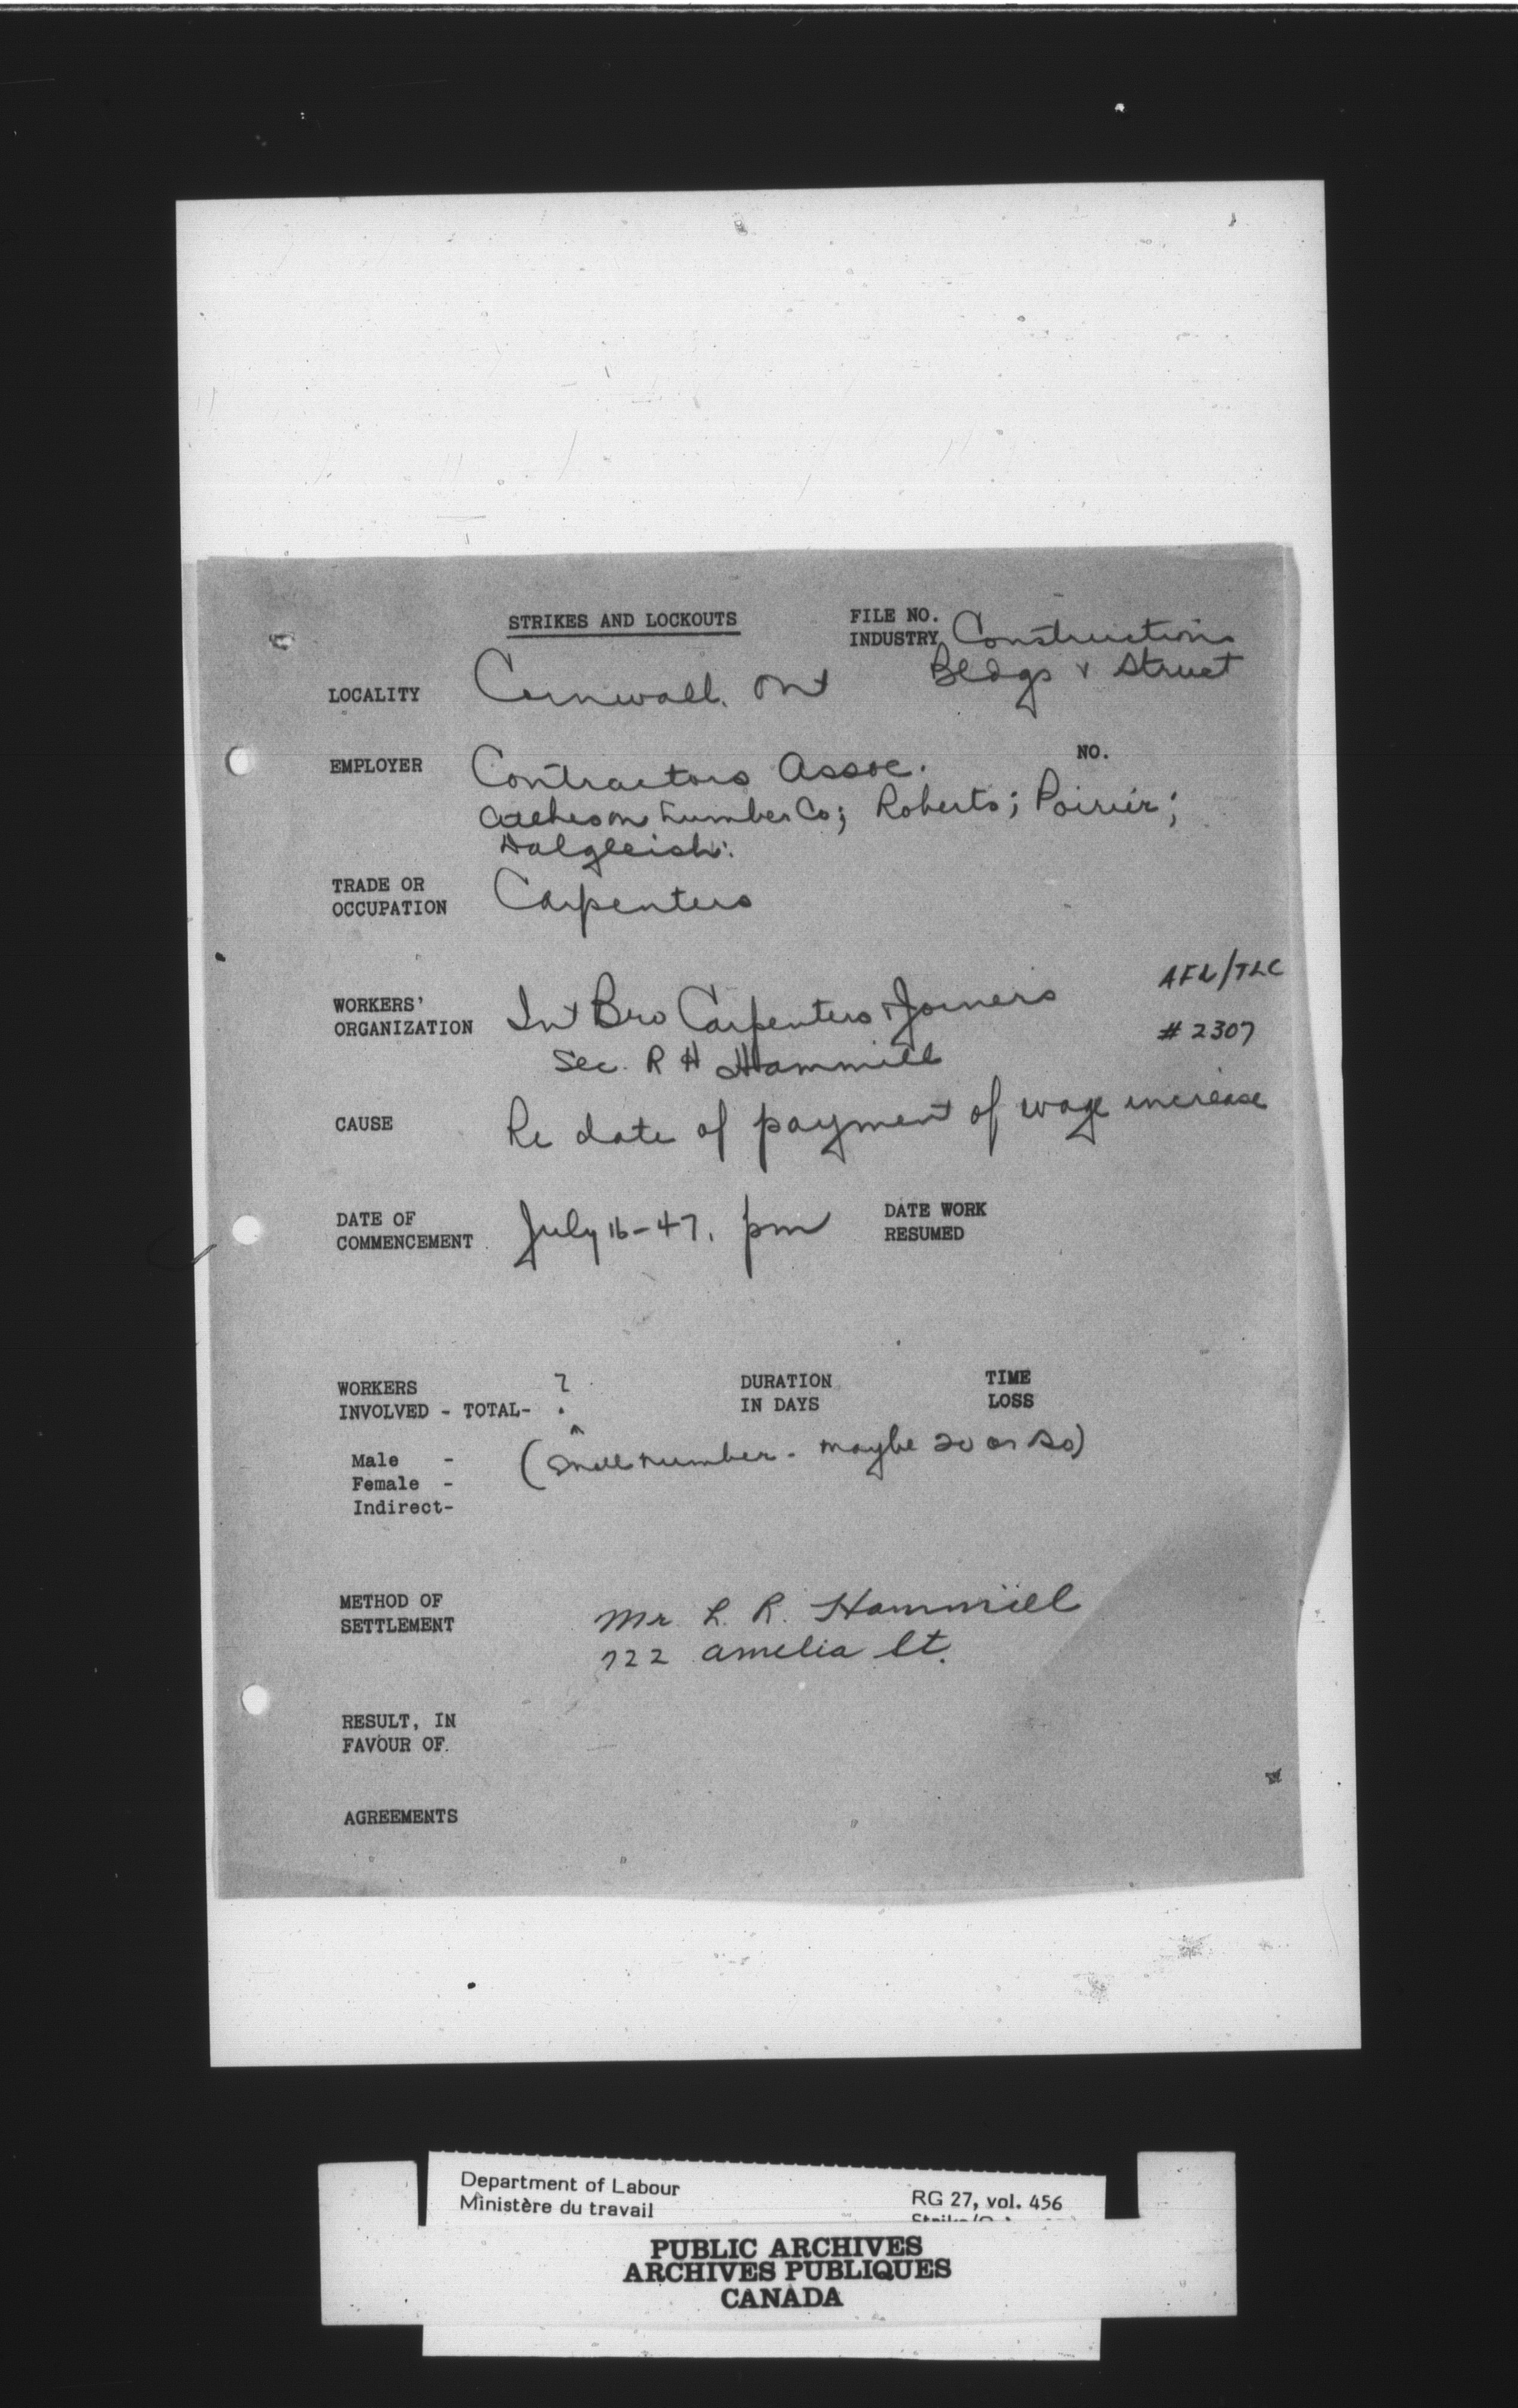 STRIKES AND LOCKOUTS
FILE NO.
INDUSTRY Construction
Bldgs & Struct
LOCALITY Cornwall, Ont
EMPLOYER Contractors Assoc. NO.
Atcheson Lumber Co; Roberts; Poirier;
Dalgleish:
TRADE OR
OCCUPATION Carpenters
AFL/TLC
WORKERS'
ORGANIZATION Int Bro Carpenters & Joiners
# 2307
Sec. R H Hammill
CAUSE Re date of payment of wage increase
DATE OF
COMMENCEMENT July 16-47, pm
DATE WORK
RESUMED
WORKERS
INVOLVED - TOTAL- ?
DURATION
IN DAYS
TIME
LOSS
Male - (small number - maybe 20 or so)
Female -
Indirect-
METHOD OF
SETTLEMENT
Mr L. R. Hammill
722 Amelia St.
RESULT, IN
FAVOUR OF.
AGREEMENTS
Department of Labour
Ministère du travail
RG 27, vol. 456
PUBLIC ARCHIVES
ARCHIVES PUBLIQUES
CANADA